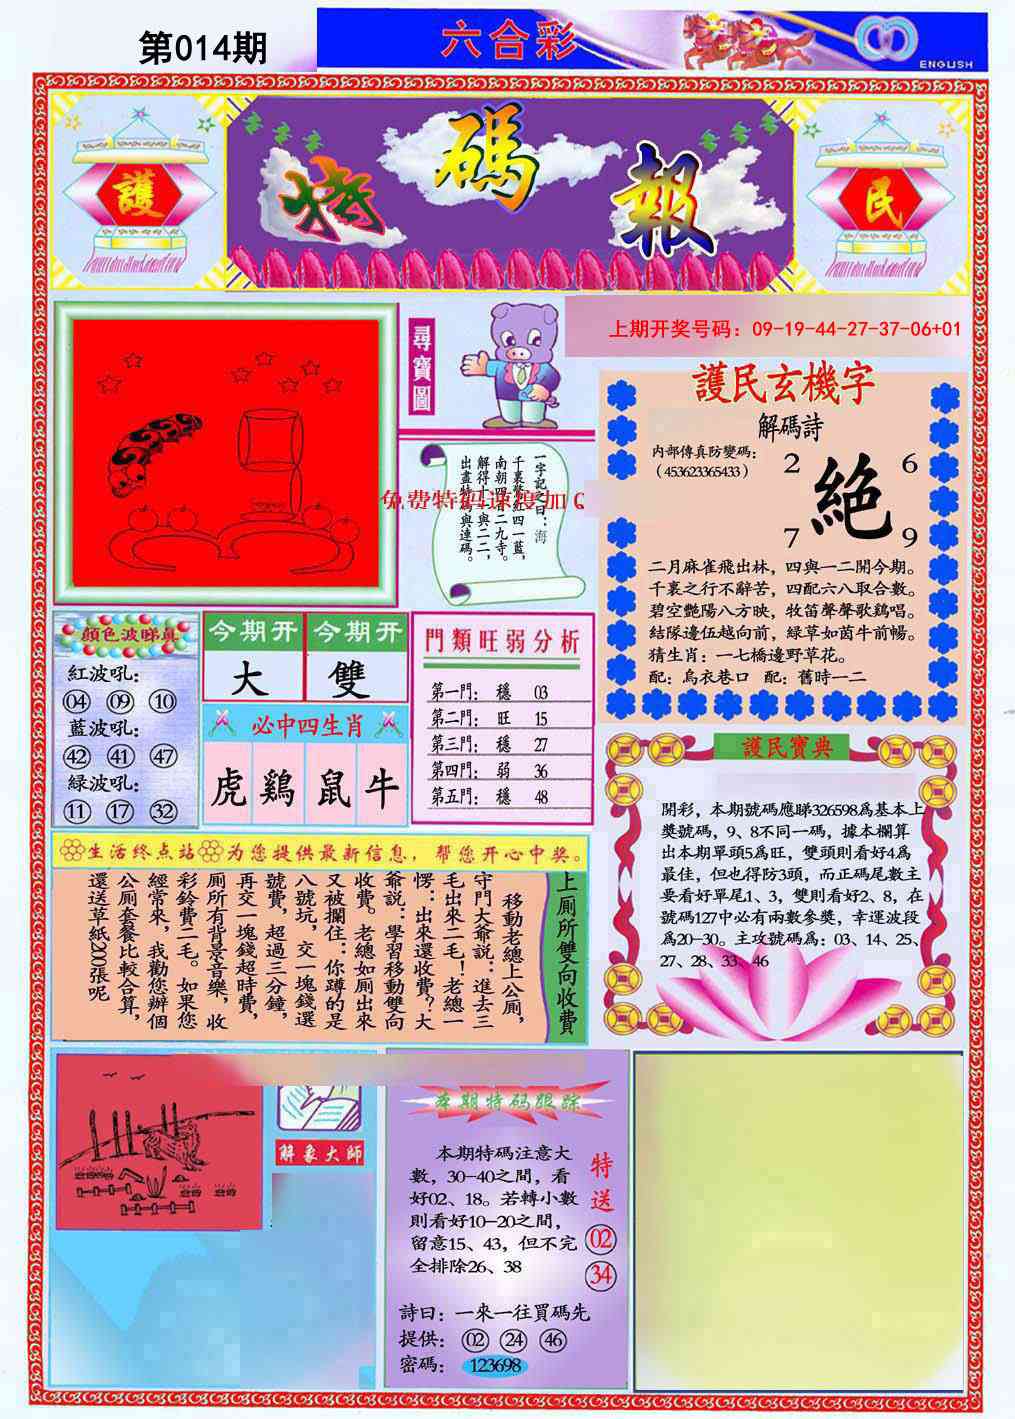 第014期
六合彩
ENGLISH
護
特碼報
民
尋寶圖
上期开奖号码：09-19-44-27-37-06+01
一字記之曰：海
千裏鶯
紅四一藍，
南朝四
百二九寺。
解得十
與二二，
出盡特
與連碼。
免费特码速搜加Q
護民玄機字
解碼詩
内部傳真防變碼：
（453623365433）
2
6
絕
7
9
二月麻雀飛出林，四與一二開今期。
千裏之行不辭苦，四配六八取合數。
碧空艷陽八方映，牧笛聲聲歌鷄唱。
結隊邊伍越向前，緑草如茵牛前暢。
猜生肖：一七橋邊野草花。
配：烏衣巷口 配：舊時一二
顔色波睇真
紅波吼：
04 09 10
藍波吼：
42 41 47
緑波吼：
11 17 32
今期开
今期开
大
雙
必中四生肖
虎 鷄 鼠 牛
門類旺弱分析
第一門： 穩 03
第二門： 旺 15
第三門： 穩 27
第四門： 弱 36
第五門： 穩 48
護民寶典
開彩，本期號碼應睇326598爲基本上
獎號碼，9、8不同一碼，據本欄算
出本期單頭5爲旺，雙頭則看好4爲
最佳，但也得防3頭，而正碼尾數主
要看好單尾1、3，雙則看好2、8，在
號碼127中必有兩數參獎，幸運波段
爲20-30。主攻號碼爲：03、14、25、
27、28、33、46
生活终点站 为您提供最新信息，帮您开心中奖。
上厠所雙向收費
移動老總上公厠，
守門大爺説：進去三
毛出來二毛！老總一
愣：出來還收費？大
爺説：學習移動雙向
收費。老總如厠出來
又被攔住：你蹲的是
八號坑，交一塊錢選
號費，超過三分鐘，
再交一塊錢超時費，
厠所有背景音樂，收
彩鈴費二毛。如果您
經常來，我勸您辦個
公厠套餐比較合算，
還送草紙200張呢
解象大師
本期特码跟踪
本期特碼注意大
數，30-40之間，看
好02、18。若轉小數
則看好10-20之間，
留意15、43，但不完
全排除26、38
特送
02
34
詩曰：一來一往買碼先
提供： 02 24 46
密碼： 123698